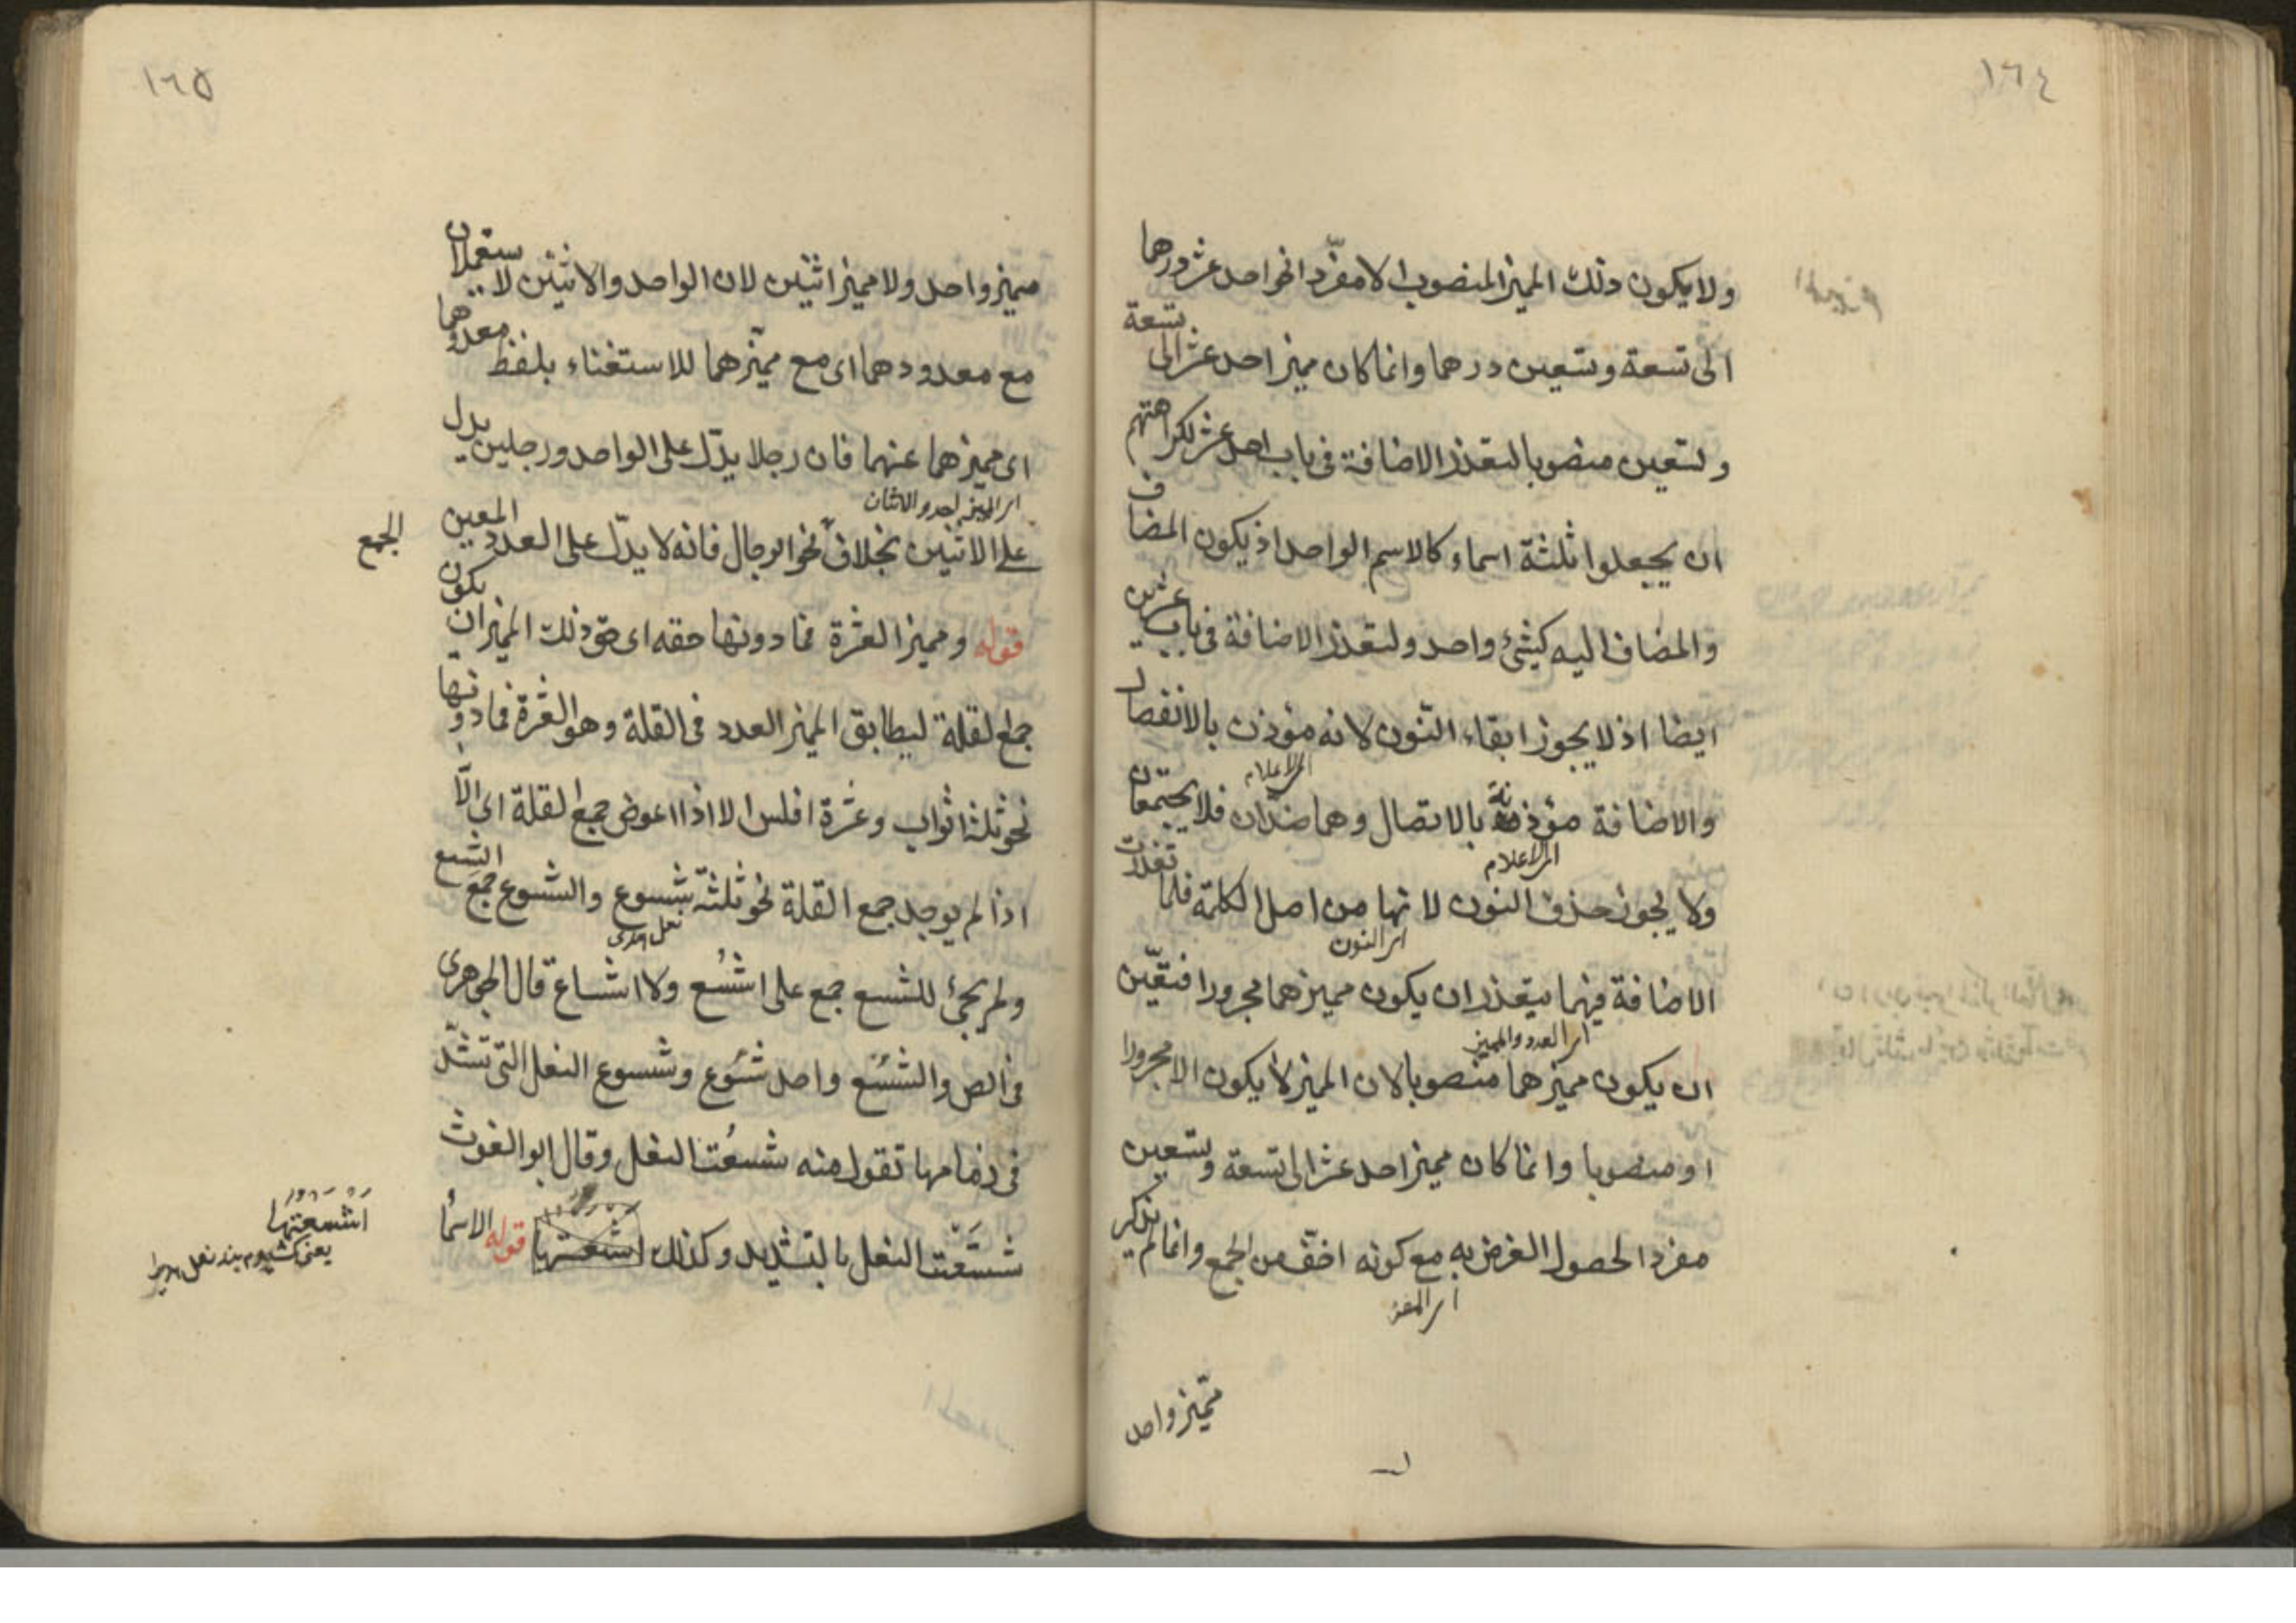 ١٦٤
ولا يكون ذلك المميز المنصوب الا مفردا نحو احد عشر درهما
الى تسعة وتسعين درهما وانما كان مميز احد عشر الى تسعة
وتسعين منصوبا لتعذر الاضافة فى باب احد عشر لكراهتهم
ان يجعلوا ثلثة اسماء كالاسم الواحد اذ يكون المضاف
والمضاف اليه كشئ واحد ولتعذر الاضافة فى باب عشرين
ايضا اذ لا يجوز ابقاء النون لانه مؤذن بالانفصال
اى اعلام
والاضافة مؤذنة بالاتصال وهما ضدان فلا يجتمعان
اى اعلام
ولا يجوز حذف النون لانها من اصل الكلمة فلما تعذرت
اى النون
الاضافة فيهما يتعذر ان يكون مميزهما مجرورا فتعين
اى العدد والمميز
ان يكون مميزهما منصوبا لان المميز لا يكون الا مجرورا
او منصوبا وانما كان مميز احد عشر الى تسعة وتسعين
مفردا لحصول الغرض به مع كونه اخف من الجمع وانما لم يذكر
اى المفرد
مميز واحد
١٦٥
مميز واحد ولا مميز اثنين لان الواحد والاثنين لا يستعملان
مع معدودهما اى مع مميزهما للاستغناء بلفظ معدودهما
اى مميزهما عنهما فان رجلا يدل على الواحد ورجلين يدل
على الاثنين بخلاف نحو الرجال فانه لا يدل على العدد المعين
الجمع
قوله ومميز العشرة فما دونها حقه اى حق ذلك المميز ان يكون
جمع لقلة ليطابق المميز العدد فى القلة وهو العشرة فما دونها
نحو ثلثة اثواب وعشرة افلس الا اذا اعوض جمع القلة اى الا
اذا لم يوجد جمع القلة نحو ثلثة شسوع والشسوع جمع الشسع
ولم يجئ للشسع جمع على اشسع ولا اشساع قال الجوهرى
فى الص والشسع واحد شسوع وشسوع النعل التى تشد
فى زمامها تقول منه شسعت النعل وقال ابو الغوث
شسعت النعل بالتشديد وكذلك اشسعتها قوله الاسماء
اشسعتها